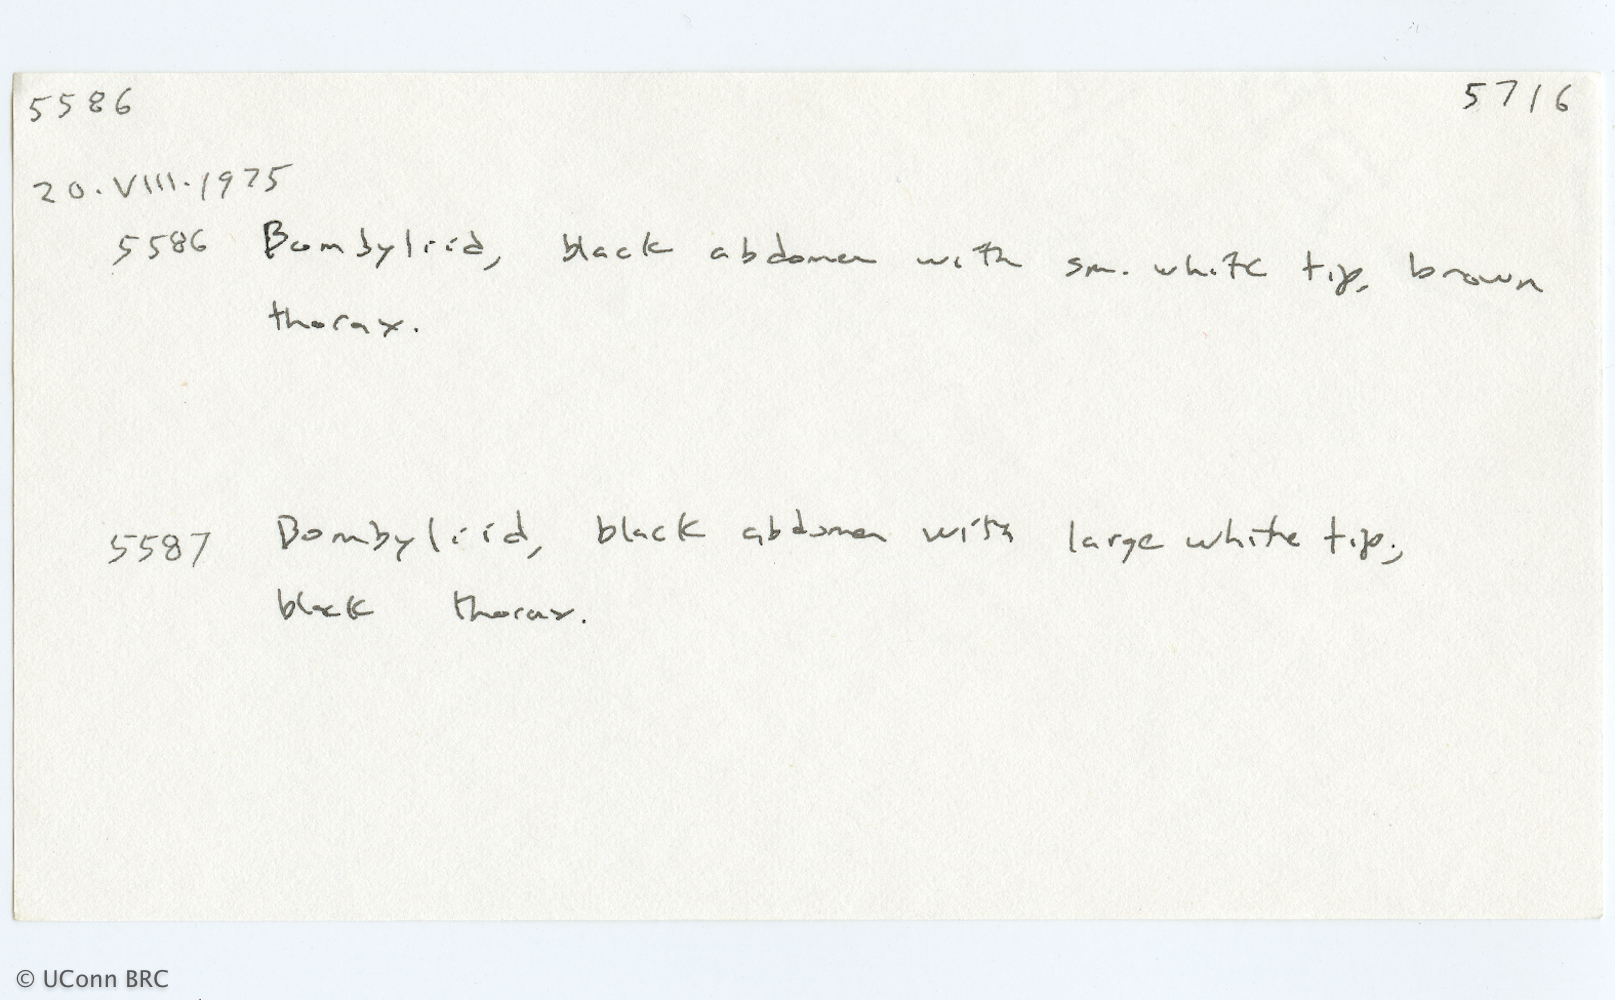 5586 5716
20.VIII.1975
5586 Bombyliid, black abdomen with sm. white tip, brown
thorax.
5587 Bombyliid, black abdomen with large white tip;
black thorax.
© UConn BRC